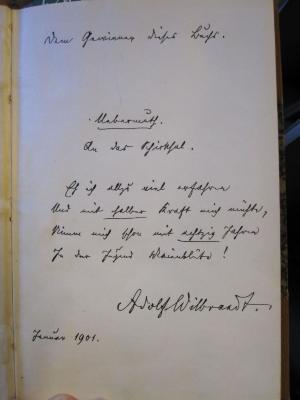 Dem Gewinner dieses Buchs.
Uebermuth.
An das Schicksal.
Eh ich allzu viel erfahre
Und mit halber Kraft mich mühte,
Nimm mich schon mit achtzig Jahren
In der Jugend Maienblüte!
Adolf Wilbrandt.
Januar 1901.